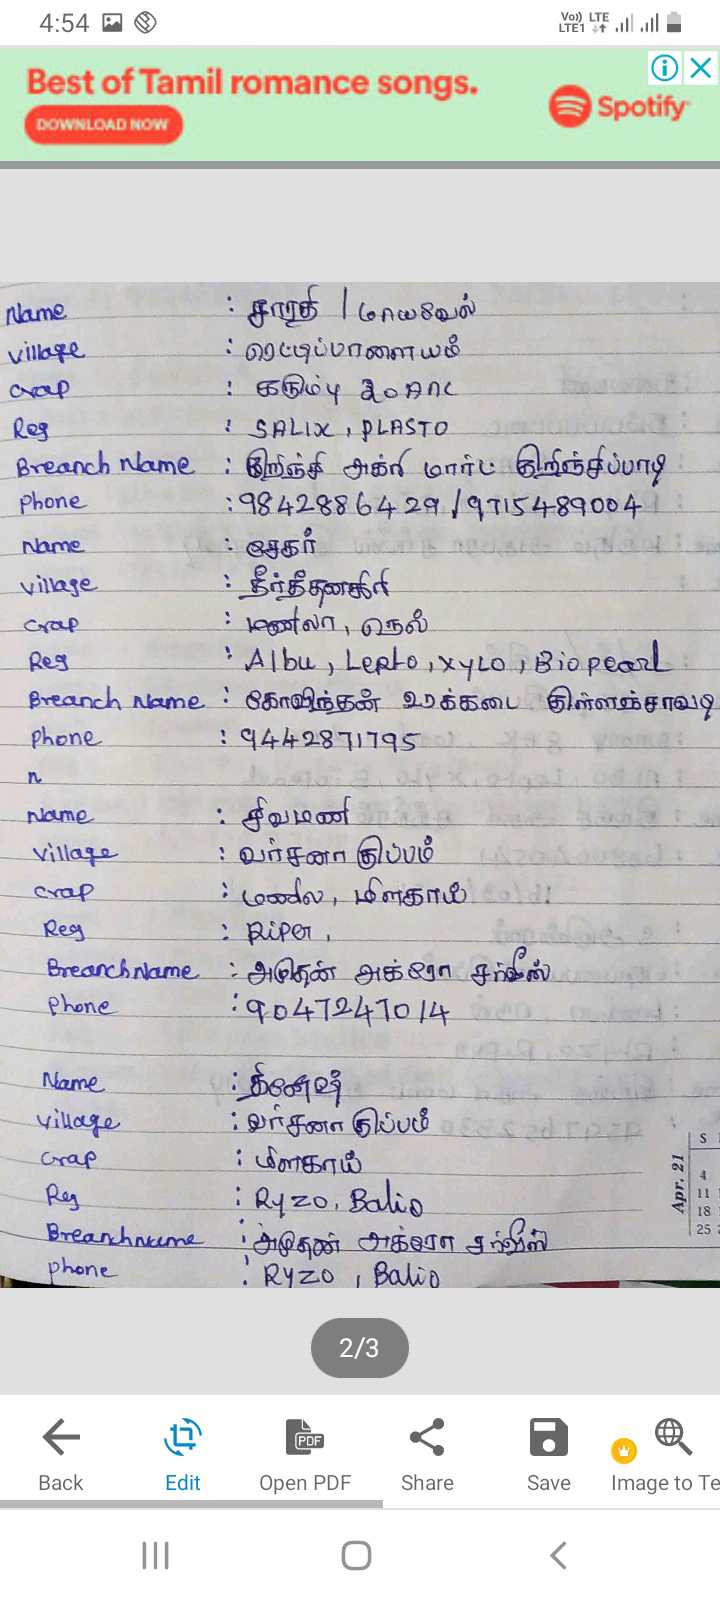 4:54
Vo)) LTE
LTE1
Best of Tamil romance songs.
DOWNLOAD NOW
Spotify
Name : சாரதி / மாயவேல்
village : ரெட்டிப்பாளையம்
Crap : கரும்பு
Reg : SALIX, PLASTO
Breanch Name : குறிஞ்சி அக்ரி மார்ட் குறிஞ்சிப்பாடி
Phone : 9842886429 / 9715489004
Name : சேகர்
village : தீர்த்தனகிரி
Crap : மணிலா, நெல்
Reg : Albu, Lepto, xyLo, Biopearl
Breanch Name : கோவிந்தன் உரக்கடை குள்ளஞ்சாவடி
Phone : 9442871795
n
Name : சிவமணி
village : வர்சனா குப்பம்
Crap : மணிலா, மிளகாய்
Reg : Riper,
Breanch Name : அமுதன் அக்ரோ சர்வீஸ்
Phone : 9047247014
Name : தினேஷ்
village : வர்சனா குப்பம்
Crap : மிளகாய்
Reg : Ryzo, Balio
Breanchname : அமுதன் அக்ரோ சர்வீஸ்
phone : RYZO, Balio
Apr. 21
S
4
11
18
25
2/3
Back
Edit
PDF
Open PDF
Share
Save
Image to Te